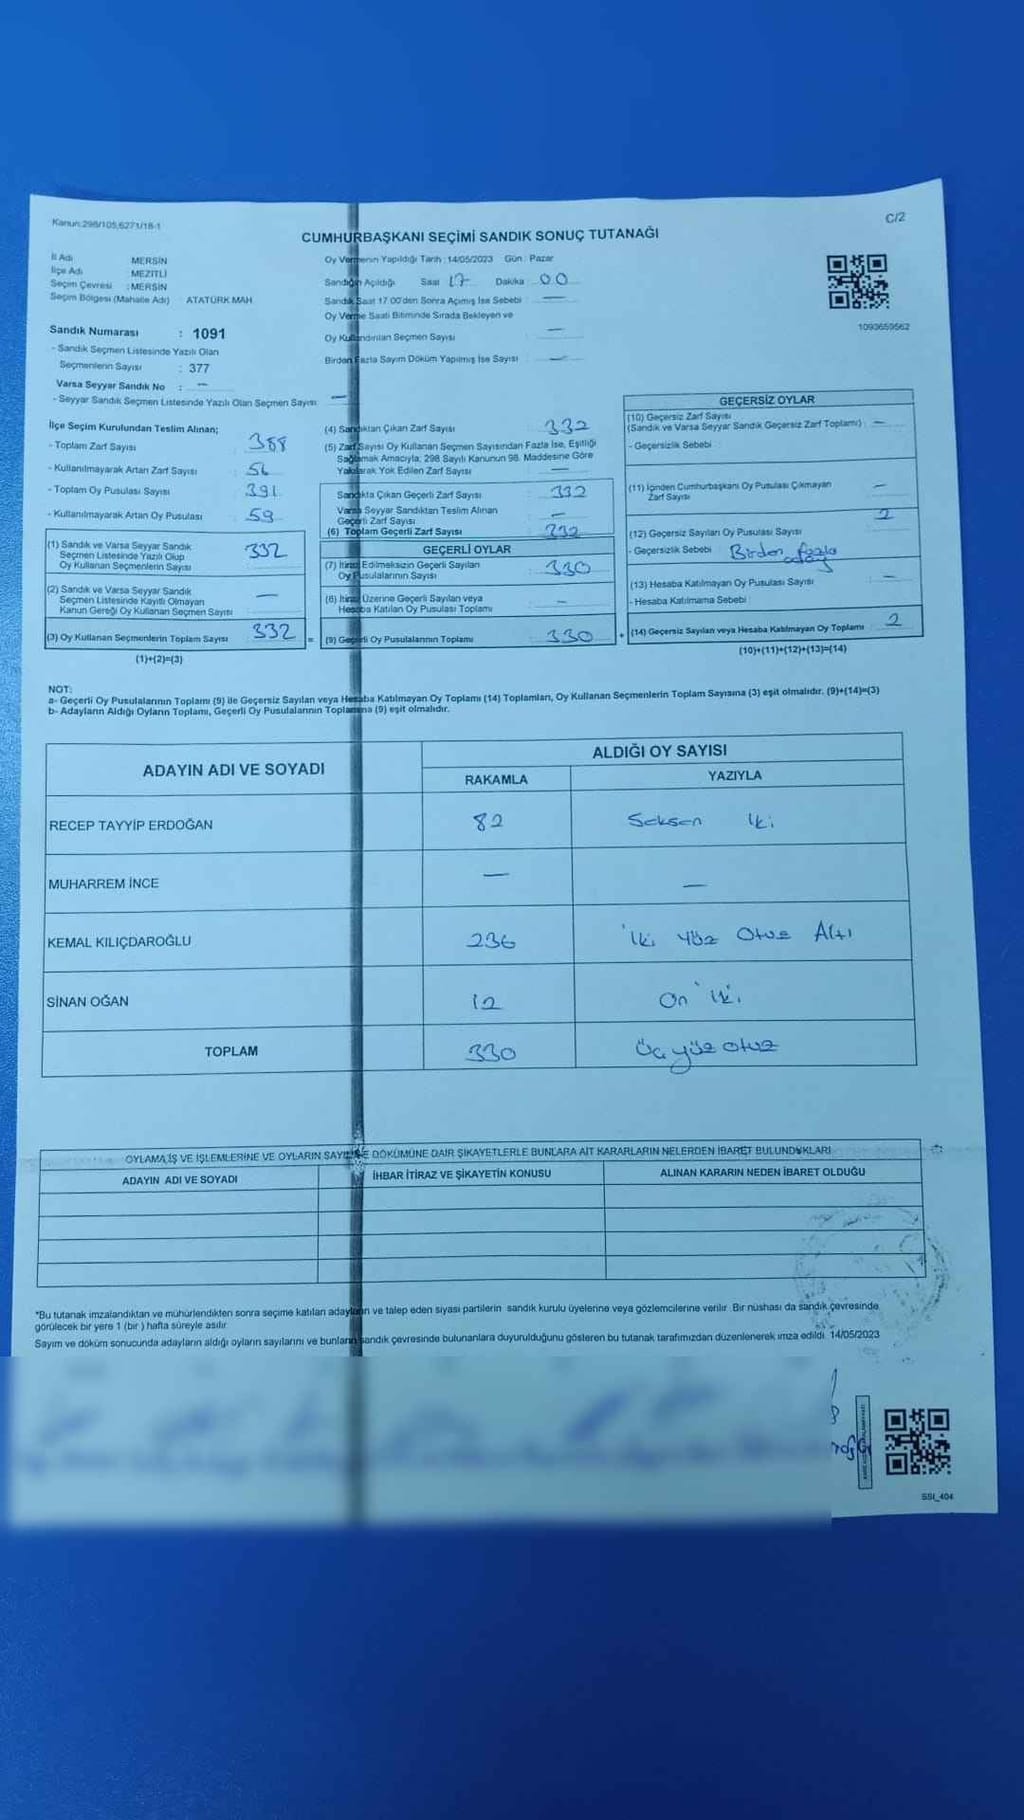 Kanun:298/105,6271/18-1
C/2
CUMHURBAŞKANI SEÇİMİ SANDIK SONUÇ TUTANAĞI
İl Adı : MERSİN
İlçe Adı : MEZİTLİ
Seçim Çevresi : MERSİN
Seçim Bölgesi (Mahalle Adı) : ATATÜRK MAH
Sandık Numarası : 1091
- Sandık Seçmen Listesinde Yazılı Olan
Seçmenlerin Sayısı : 377
Varsa Seyyar Sandık No : —
- Seyyar Sandık Seçmen Listesinde Yazılı Olan Seçmen Sayısı: —
Oy Vermenin Yapıldığı Tarih : 14/05/2023 Gün : Pazar
Sandığın Açıldığı Saat 17 Dakika 00
Sandık Saat 17.00'den Sonra Açılmış İse Sebebi —
Oy Verme Saati Bitiminde Sırada Bekleyen ve
Oy Kullandırılan Seçmen Sayısı —
Birden Fazla Sayım Döküm Yapılmış İse Sayısı —
1093659562
İlçe Seçim Kurulundan Teslim Alınan;
- Toplam Zarf Sayısı 388
- Kullanılmayarak Artan Zarf Sayısı 56
- Toplam Oy Pusulası Sayısı 391
- Kullanılmayarak Artan Oy Pusulası 59
(1) Sandık ve Varsa Seyyar Sandık
Seçmen Listesinde Yazılı Olup
Oy Kullanan Seçmenlerin Sayısı 332
(2) Sandık ve Varsa Seyyar Sandık
Seçmen Listesinde Kayıtlı Olmayan
Kanun Gereği Oy Kullanan Seçmen Sayısı —
(3) Oy Kullanan Seçmenlerin Toplam Sayısı 332 =
(1)+(2)=(3)
(4) Sandıktan Çıkan Zarf Sayısı 332
(5) Zarf Sayısı Oy Kullanan Seçmen Sayısından Fazla İse, Eşitliği
Sağlamak Amacıyla; 298 Sayılı Kanunun 98. Maddesine Göre
Yakılarak Yok Edilen Zarf Sayısı —
Sandıkta Çıkan Geçerli Zarf Sayısı 332
Varsa Seyyar Sandıktan Teslim Alınan
Geçerli Zarf Sayısı —
(6) Toplam Geçerli Zarf Sayısı 332
GEÇERLİ OYLAR
(7) İtiraz Edilmeksizin Geçerli Sayılan
Oy Pusulalarının Sayısı 330
(8) İtiraz Üzerine Geçerli Sayılan veya
Hesaba Katılan Oy Pusulası Toplamı —
(9) Geçerli Oy Pusulalarının Toplamı 330 +
GEÇERSİZ OYLAR
(10) Geçersiz Zarf Sayısı
(Sandık ve Varsa Seyyar Sandık Geçersiz Zarf Toplamı) —
- Geçersizlik Sebebi :
(11) İçinden Cumhurbaşkanı Oy Pusulası Çıkmayan
Zarf Sayısı —
(12) Geçersiz Sayılan Oy Pusulası Sayısı 2
- Geçersizlik Sebebi : Birden fazla
aday
(13) Hesaba Katılmayan Oy Pusulası Sayısı —
- Hesaba Katılmama Sebebi :
(14) Geçersiz Sayılan veya Hesaba Katılmayan Oy Toplamı 2
(10)+(11)+(12)+(13)=(14)
NOT:
a- Geçerli Oy Pusulalarının Toplamı (9) ile Geçersiz Sayılan veya Hesaba Katılmayan Oy Toplamı (14) Toplamları, Oy Kullanan Seçmenlerin Toplam Sayısına (3) eşit olmalıdır. (9)+(14)=(3)
b- Adayların Aldığı Oyların Toplamı, Geçerli Oy Pusulalarının Toplamına (9) eşit olmalıdır.
ADAYIN ADI VE SOYADI
ALDIĞI OY SAYISI
RAKAMLA YAZIYLA
RECEP TAYYİP ERDOĞAN 82 Seksen iki
MUHARREM İNCE — —
KEMAL KILIÇDAROĞLU 236 İki Yüz Otuz Altı
SİNAN OĞAN 12 On iki
TOPLAM 330 Üç yüz otuz
OYLAMA İŞ VE İŞLEMLERİNE VE OYLARIN SAYIM VE DÖKÜMÜNE DAİR ŞİKAYETLERLE BUNLARA AİT KARARLARIN NELERDEN İBARET BULUNDUKLARI
ADAYIN ADI VE SOYADI İHBAR İTİRAZ VE ŞİKAYETİN KONUSU ALINAN KARARIN NEDEN İBARET OLDUĞU
*Bu tutanak imzalandıktan ve mühürlendikten sonra seçime katılan adayların ve talep eden siyasi partilerin sandık kurulu üyelerine veya gözlemcilerine verilir. Bir nüshası da sandık çevresinde
görülecek bir yere 1 (bir ) hafta süreyle asılır.
Sayım ve döküm sonucunda adayların aldığı oyların sayılarını ve bunların sandık çevresinde bulunanlara duyurulduğunu gösteren bu tutanak tarafımızdan düzenlenerek imza edildi. 14/05/2023
SSI_404